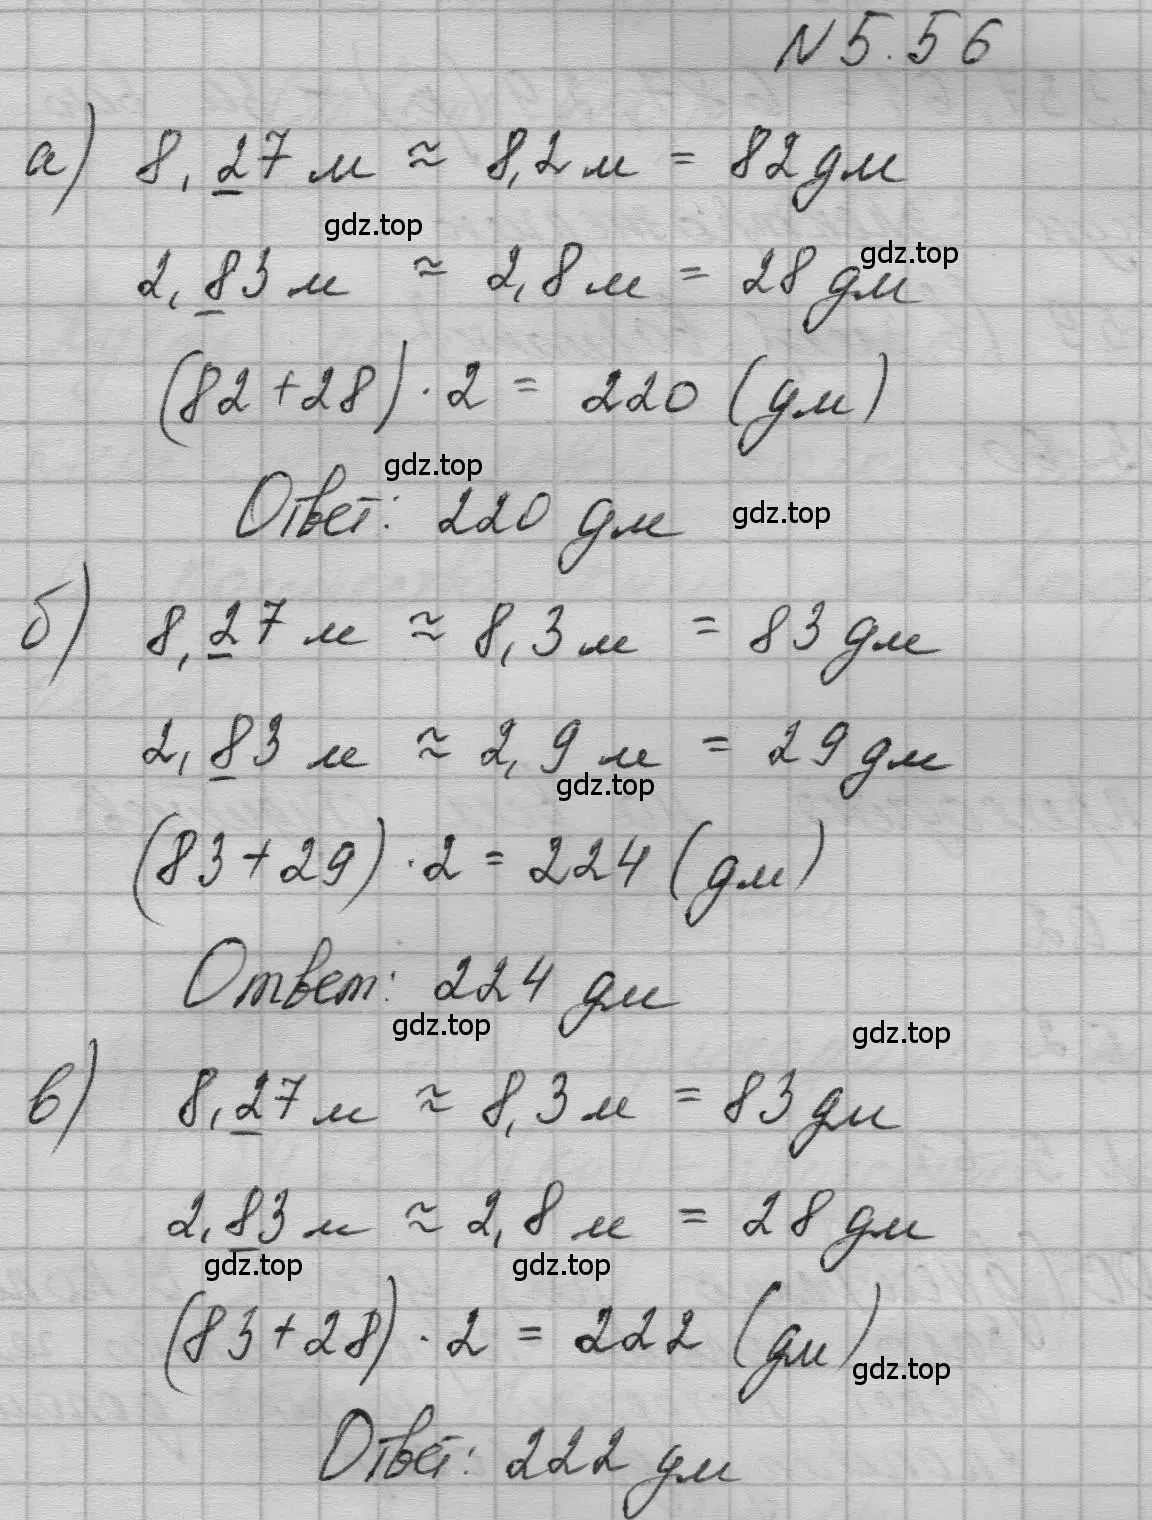 N 5.56
а) 8,27 м ≈ 8,2 м = 82 дм
gdz.top
gdz.top
2,83 м ≈ 2,8 м = 28 дм
(82+28)·2 = 220 (дм)
gdz.top
Ответ: 220 дм
gdz.top
б) 8,27 м ≈ 8,3 м = 83 дм
2,83 м ≈ 2,9 м = 29 дм
gdz.top
(83+29)·2 = 224 (дм)
Ответ: 224 дм
gdz.top
gdz.top
в) 8,27 м ≈ 8,3 м = 83 дм
2,83 м ≈ 2,8 м = 28 дм
gdz.top
gdz.top
(83+28)·2 = 222 (дм)
gdz.top
Ответ: 222 дм